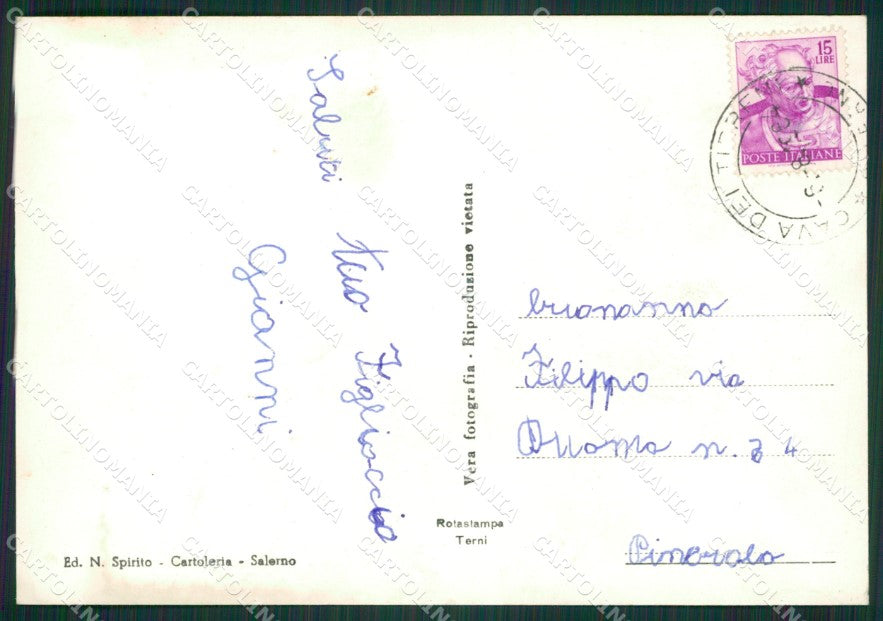 Saluti
tuo Figlioccio
Gianni
Vera fotografia - Riproduzione vietata
Rotastampa
Terni
Ed. N. Spirito - Cartoleria - Salerno
15
LIRE
POSTE ITALIANE
CAVA DEI TIRRENI
buonanno
Filippo via
n. 34
Pinerolo
CARTOLINOMANIA